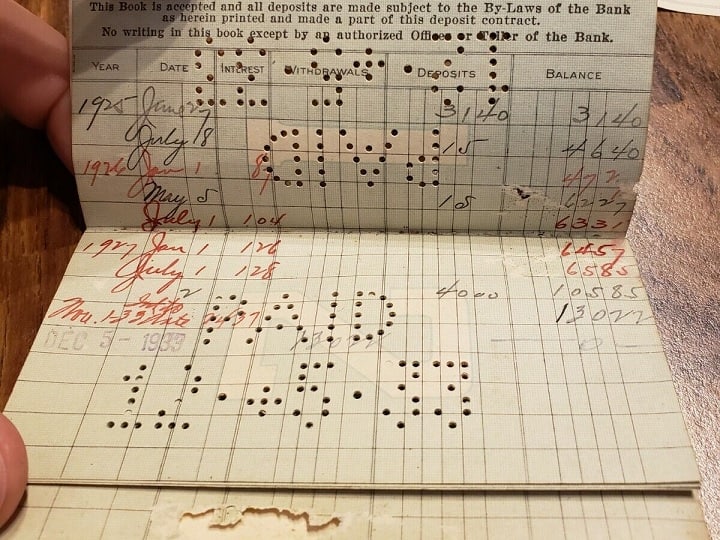 This Book is accepted and all deposits are made subject to the By-Laws of the Bank
as herein printed and made a part of this deposit contract.
No writing in this book except by an authorized Officer or Teller of the Bank.
YEAR DATE INTEREST WITHDRAWALS DEPOSITS BALANCE
1925 Jan 27 3140 3140
July 18 15 4640
1926 Jan 1 8 472
May 5 15 6227
July 1 104 6331
1927 Jan 1 126 6457
July 1 128 6585
2 4000 10585
Nov. 1-33 2437 13022
DEC 5 - 1933 13022 — 0 —
PAID
12.5.33